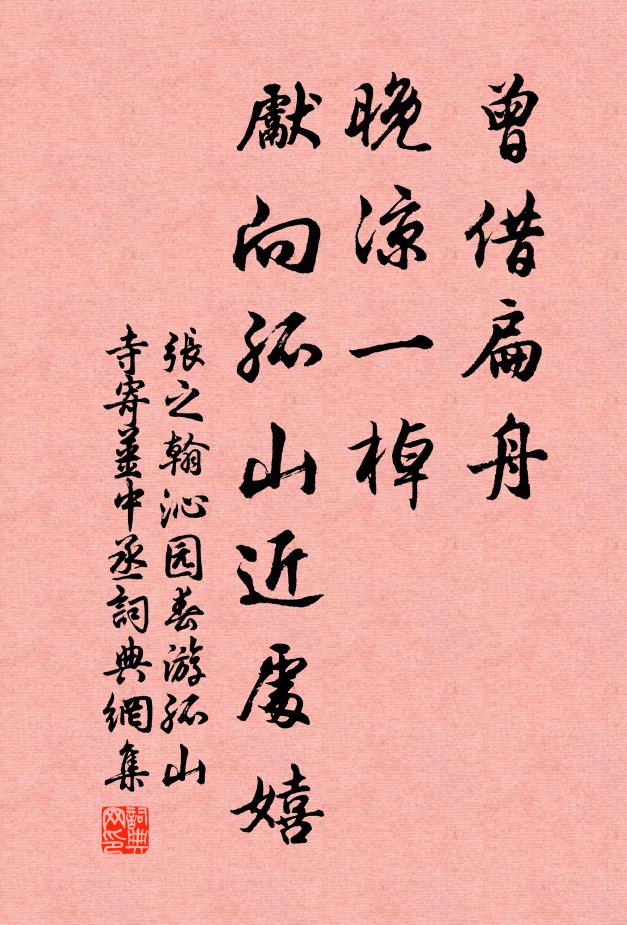 曾借扁舟
晚凉一棹
獻向孤山近處嬉
張之翰沁园春游孤山
寺寄薑中丞詞典網集
詞典网印